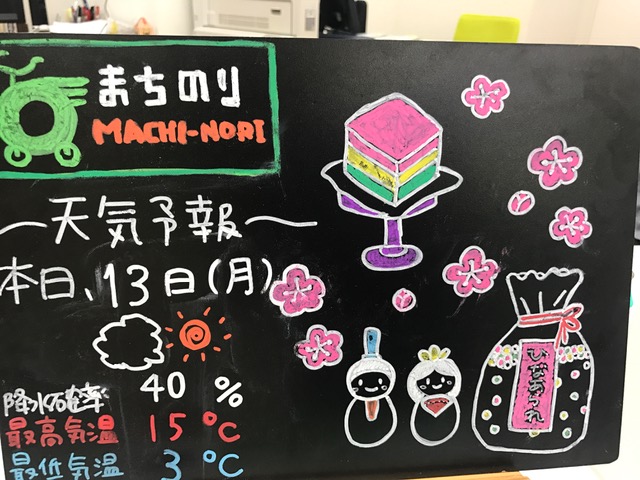 まちのり
MACHI-NORI
～天気予報～
本日、13日(月)
降水確率 40 %
最高気温 15℃
最低気温 3℃
ひなあられ